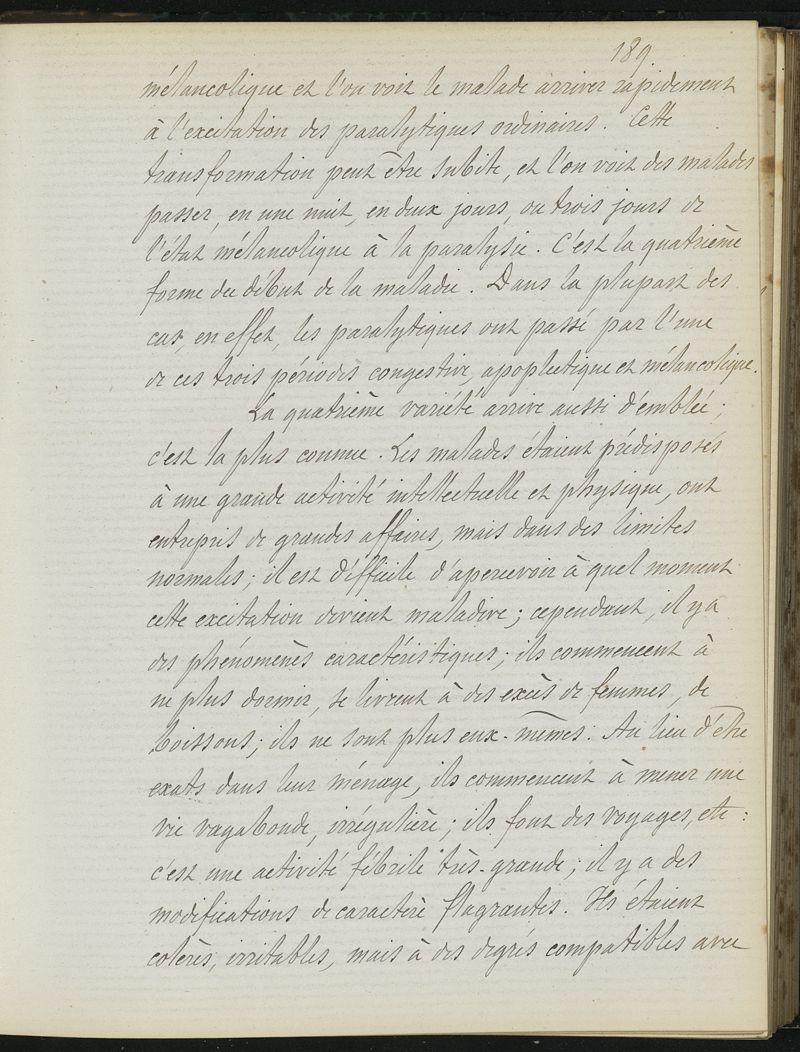 189.
mélancolique et l'on voit le malade arriver rapidement
à l'excitation des paralytiques ordinaires. Cette
transformation peut être subite, et l'on voit des malades
passer, en une nuit, en deux jours, ou trois jours de
l'état mélancolique à la paralysie. C'est la quatrième
forme du début de la maladie. Dans la plupart des
cas, en effet, les paralytiques ont passé par l'une
de ces trois périodes congestive, apoplectique et mélancolique.
La quatrième variété arrive aussi d'emblée;
c'est la plus connue. Les malades étaient prédisposés
à une grande activité intellectuelle et physique, ont
entrepris de grandes affaires, mais dans des limites
normales; il est difficile d'apercevoir à quel moment
cette excitation devient maladive; cependant, il y a
des phénomènes caractéristiques; ils commencent à
ne plus dormir, se livrent à des excès de femmes, de
boissons; ils ne sont plus eux-mêmes. Au lieu d'être
exacts dans leur ménage, ils commencent à mener une
vie vagabonde, irrégulière; ils font des voyages, etc:
c'est une activité fébrile très-grande; il y a des
modifications de caractère flagrantes. Ils étaient
colères, irritables, mais à des degrés compatibles avec